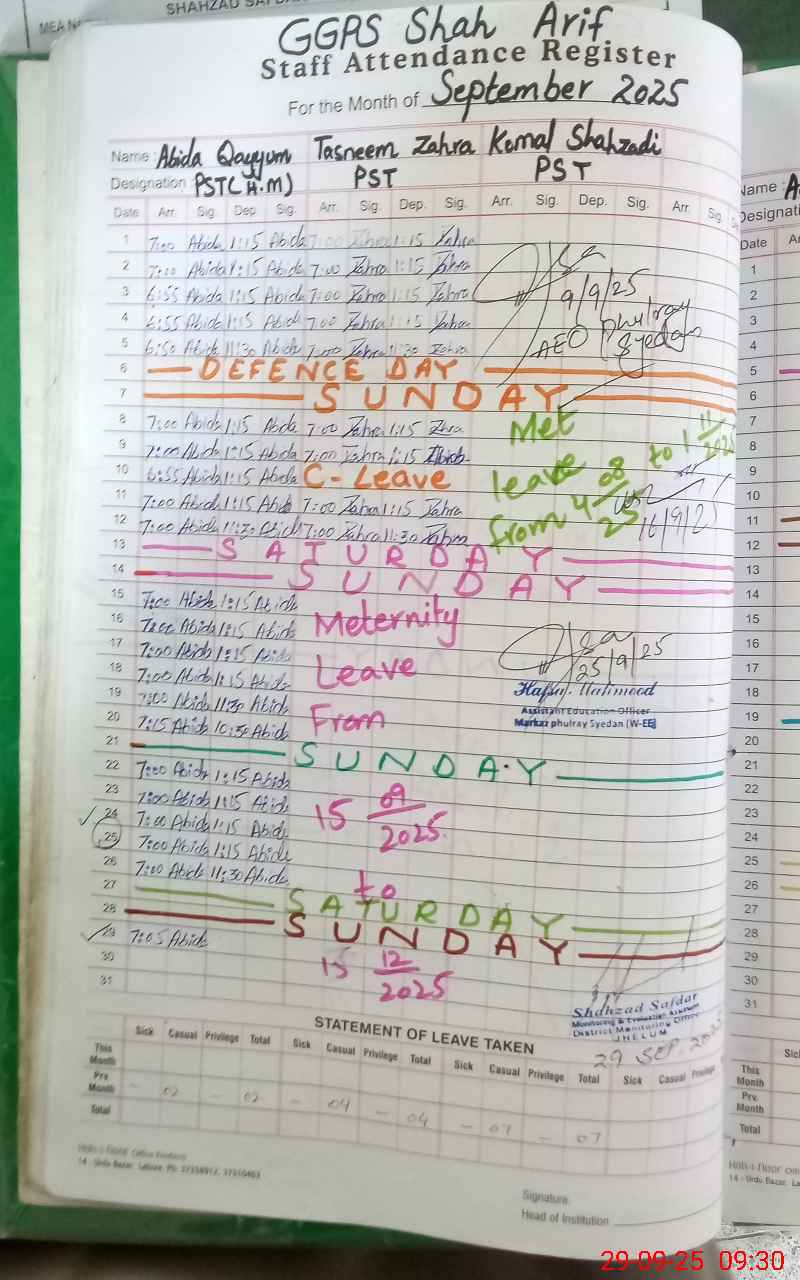 SHAHZAD
GGPS Shah Arif
Staff Attendance Register
For the Month of September 2025
Name : Abida Qayyum Tasneem Zahra Komal Shahzadi
Designation : PST(H.M) PST PST
Date Arr. Sig. Dep Sig. Arr. Sig. Dep. Sig. Arr. Sig. Dep. Sig. Arr. Sig.
1 7:00 Abida 1:15 Abida 7:00 Zahra 1:15 Zahra
2 7:00 Abida 1:15 Abida 7:00 Zahra 1:15 Zahra
3 6:55 Abida 1:15 Abida 7:00 Zahra 1:15 Zahra
9/9/25
4 6:55 Abida 1:15 Abida 7:00 Zahra 1:15 Zahra
AEO Phulray Syedan
5 6:50 Abida 11:30 Abida 7:00 Zahra 11:30 Zahra
6 DEFENCE DAY
7 SUNDAY
8 7:00 Abida 1:15 Abida 7:00 Zahra 1:15 Zahra
9 7:00 Abida 1:15 Abida 7:00 Zahra 1:15
10 6:55 Abida 1:15 Abida C-Leave
11 7:00 Abida 1:15 Abida 7:00 Zahra 1:15 Zahra
12 7:00 Abida 11:30 Abida 7:00 Zahra 11:30 Zahra
Met
leave
from 4 08/25 to 1 11/2025
16/9/25
13 SATURDAY
14 SUNDAY
15 7:00 Abida 1:15 Abida
16 7:00 Abida 1:15 Abida
17 7:00 Abida 1:15 Abida
18 7:00 Abida 1:15 Abida
19 7:00 Abida 11:30 Abida
20 7:15 Abida 10:30 Abida
Meternity
Leave
From
25/9/25
Assistant Education Officer
Markaz phulray Syedan (W-EE)
21 SUNDAY
22 7:00 Abida 1:15 Abida
23 7:00 Abida 1:15 Abida
24 7:00 Abida 1:15 Abida
25 7:00 Abida 1:15 Abida
26 7:00 Abida 11:30 Abida
15 09/2025
to
27 SATURDAY
28 SUNDAY
29 7:05 Abida
30
31
15 12/2025
Shahzad Safdar
Monitoring & Evaluation Assistant
District Monitoring Office
JHELUM
29 SEP 2025
STATEMENT OF LEAVE TAKEN
Sick Casual Privilege Total Sick Casual Privilege Total Sick Casual Privilege Total Sick Casual Privilege
This Month
Prv. Month - 02 - 02 - 04 - 04 - 07 - 07
Total
14 - Urdu Bazar, Lahore. Ph:
Signature
Head of Institution
Name : A
Designati
Date
1
2
3
4
5
6
7
8
9
10
11
12
13
14
15
16
17
18
19
20
21
22
23
24
25
26
27
28
29
30
31
Sick
This Month
Prv. Month
Total
14 - Urdu Bazar, La
29-09-25 09:30